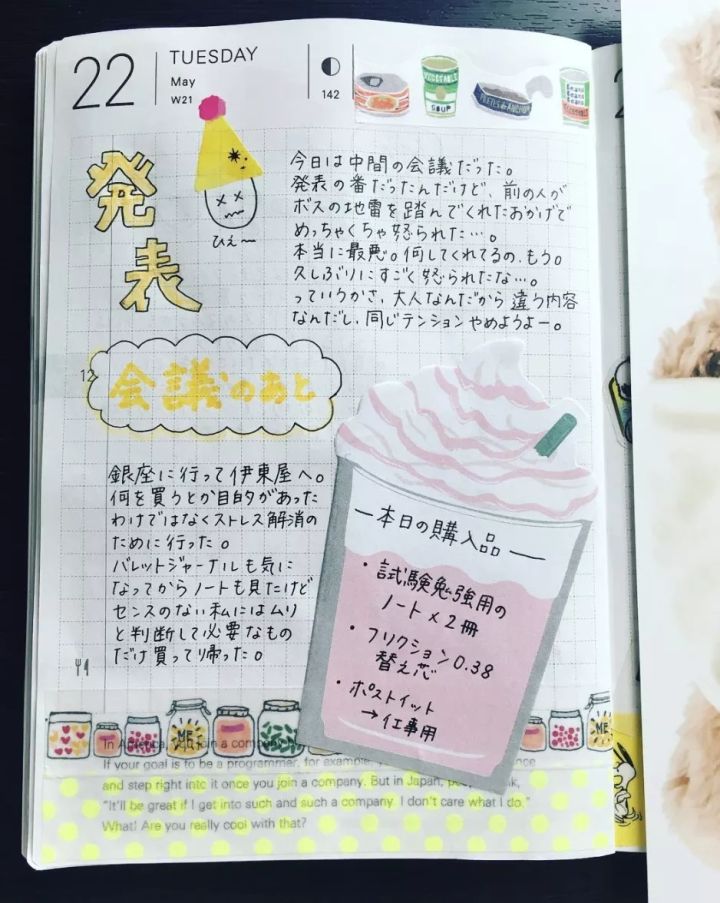 22
TUESDAY
May
W21
142
VEGETABLE
SOUP
発表
ひえ〜
今日は中間の会議だった。
発表の番だったんだけど、前の人が
ボスの地雷を踏んでくれたおかげで
めっちゃくちゃ怒られた…。
本当に最悪。何してくれてるの、もう。
久しぶりにすごく怒られたな…。
っていうかさ、大人なんだから違う内容
なんだし、同じテンションやめようよー。
12
会議のあと
銀座に行って伊東屋へ。
何を買うとか目的があった
わけではなくストレス解消の
ために行った。
バレットジャーナルも気に
なってからノートも見たけど
センスのない私にはムリ
と判断して必要なもの
だけ買って帰った。
本日の購入品
・試験勉強用の
ノート×2冊
・フリクション0.38
替え芯
・ポストイット
→仕事用
ME
ME
In America, you join a company
If your goal is to be a programmer, for example,
and step right into it once you join a company. But in Japan,
"It'll be great if I get into such and such a company. I don't care what I do."
What! Are you really cool with that?